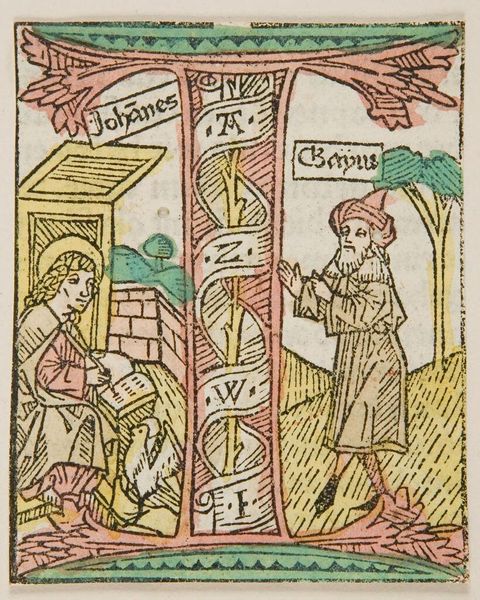 Johãnes
Gayus
·A·
·Z·
·W·
·I·